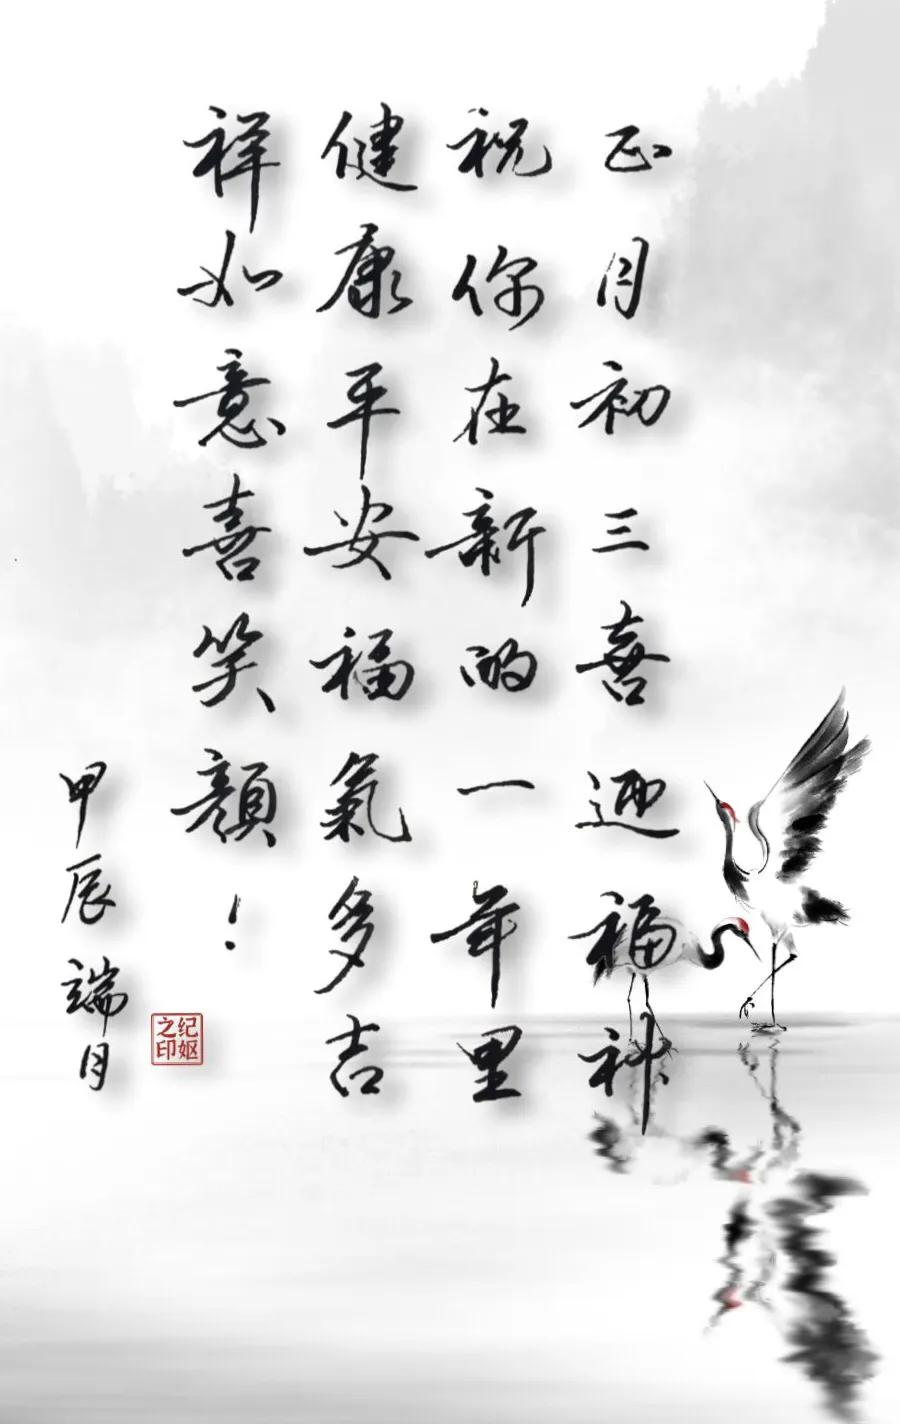 正月初三喜迎福神
祝你在新的一年里
健康平安福氣多吉
祥如意喜笑顔！
甲辰端月
纪妪之印